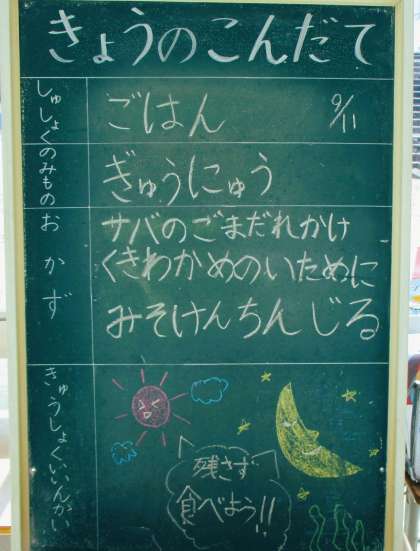 きょうのこんだて
しゅしょく
ごはん
9/11
のみもの
ぎゅうにゅう
おかず
サバのごまだれかけ
くきわかめのいために
みそけんちんじる
きゅうしょくいいんかい
残さず
食べよう!!